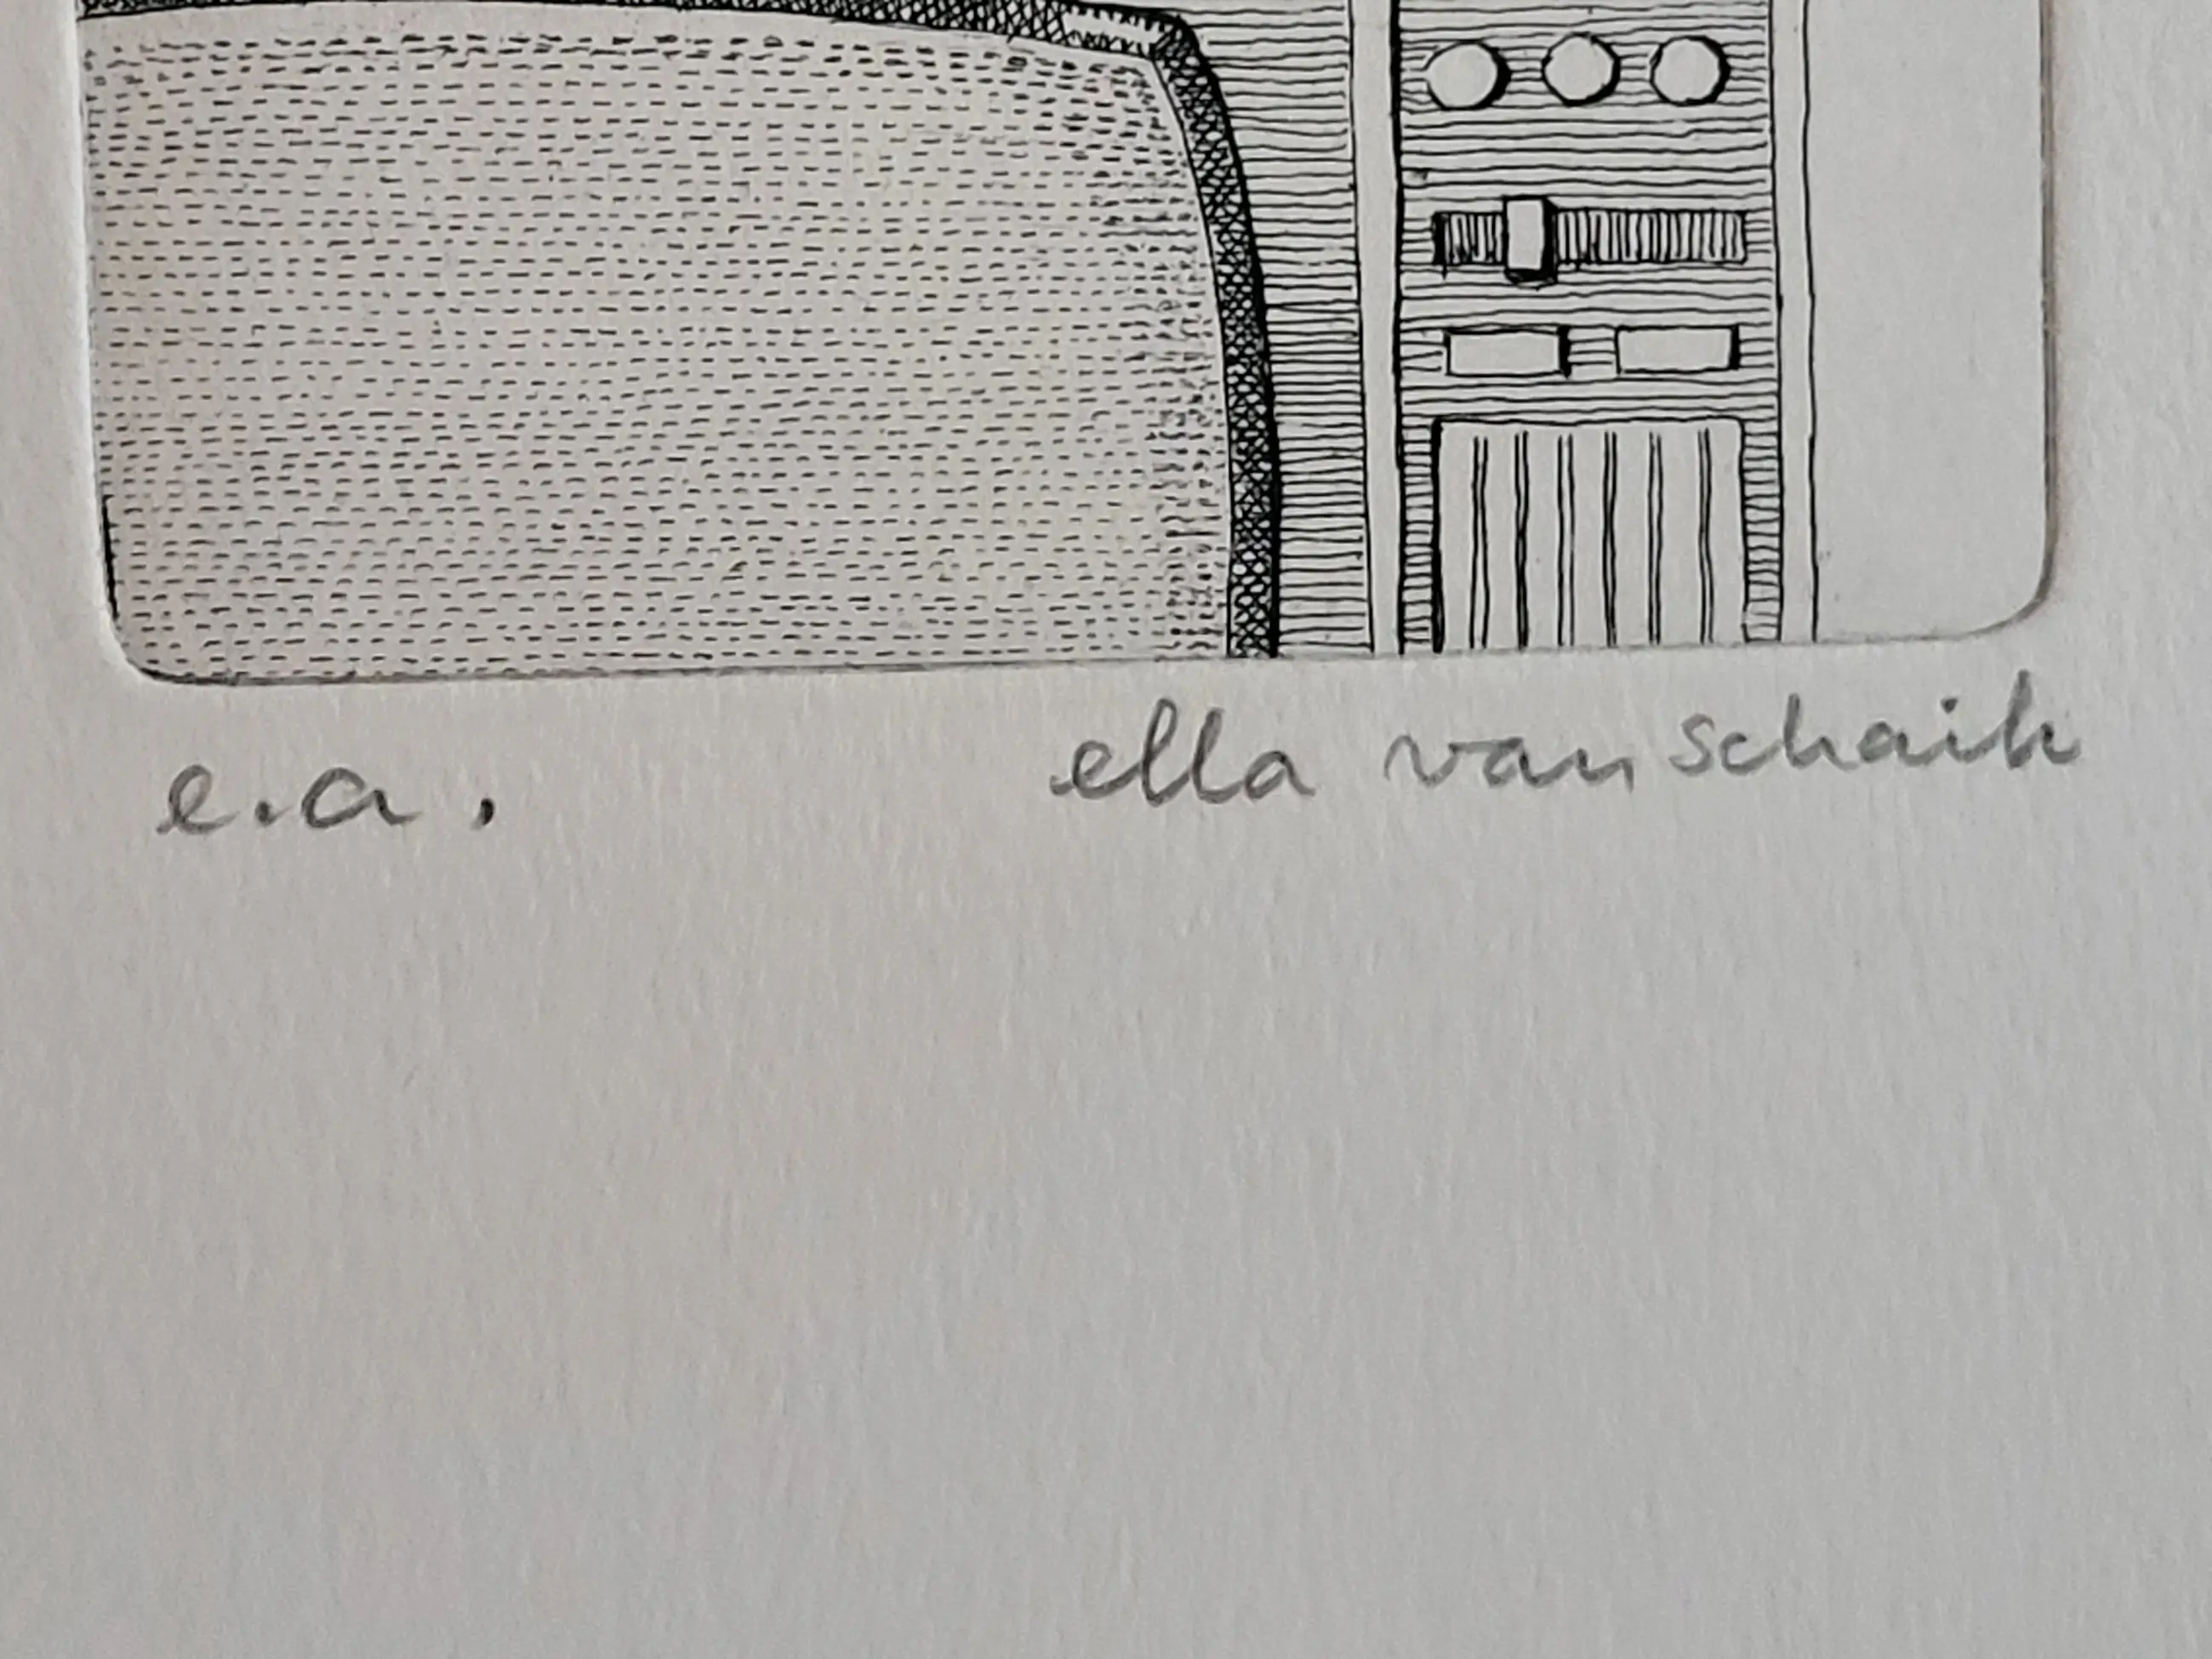 e.a. ella van schaik